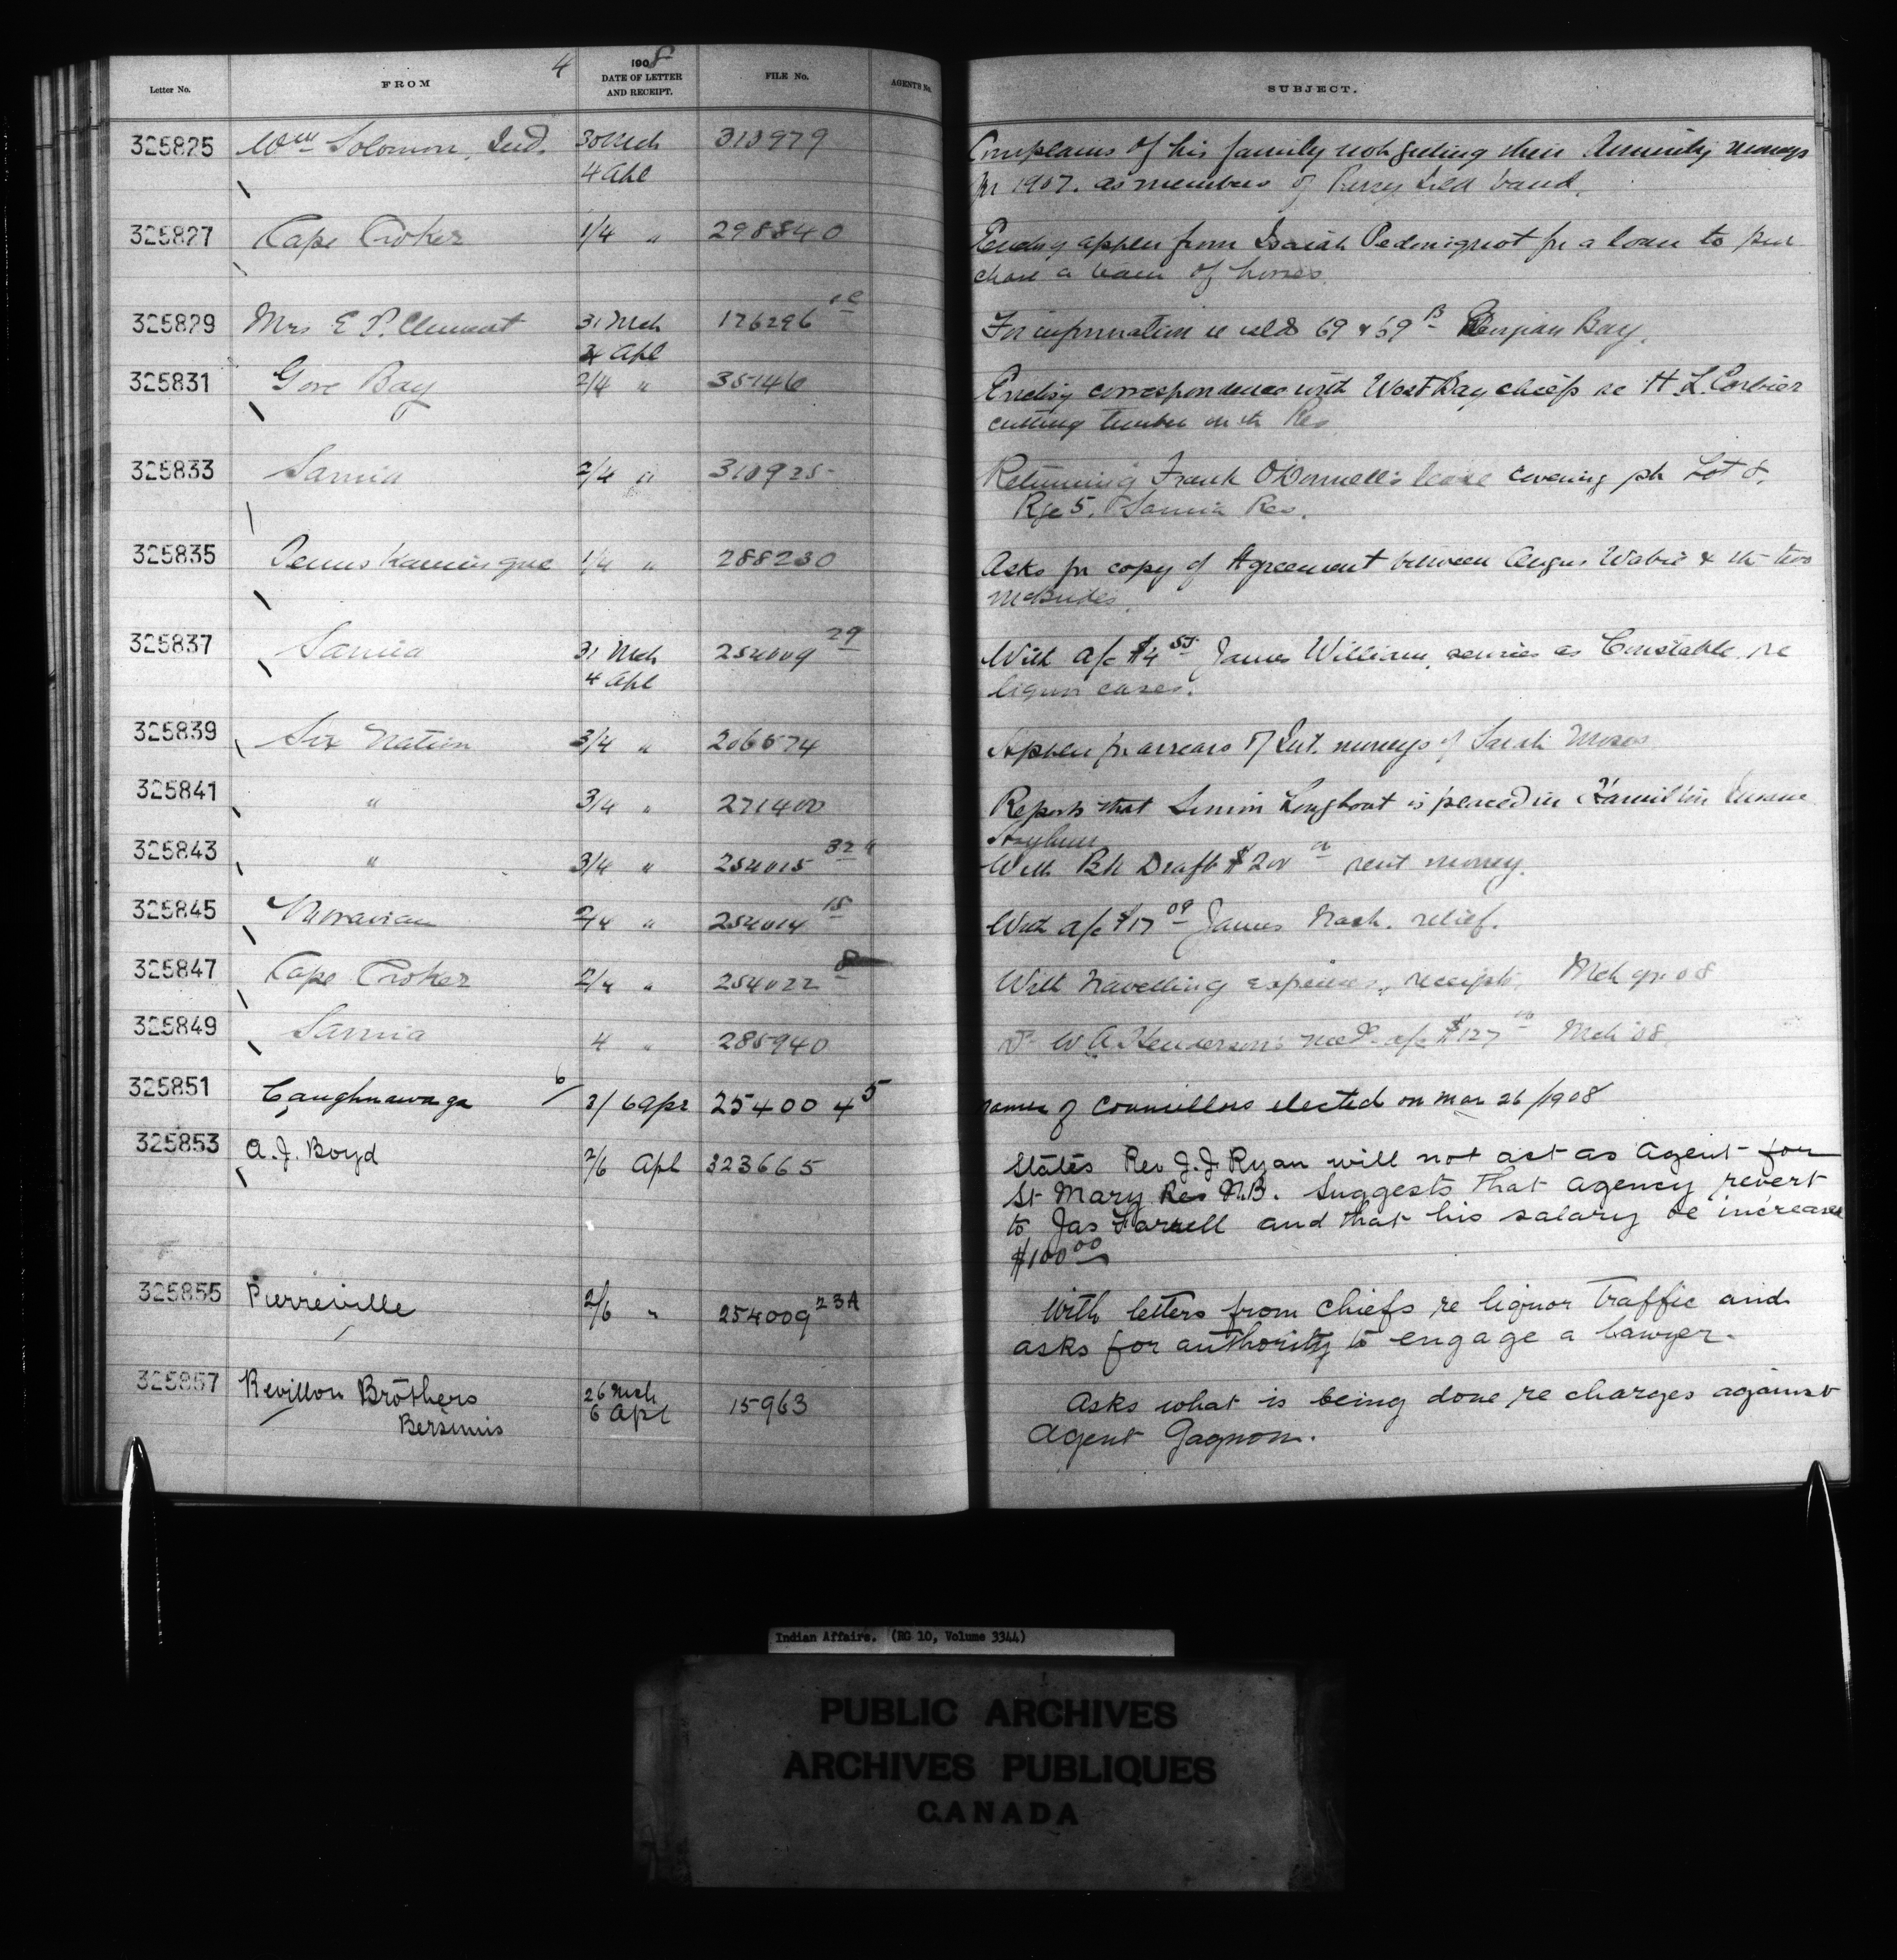 4
1908
Letter No. FROM DATE OF LETTER AND RECEIPT. FILE No. AGENTS No. SUBJECT.
325825 Wm Solomon, Ind. 30 Mch 313979 Complains of his family not getting their Annuity moneys
4 Apl for 1907. as members of Parry Isld band.
325827 Cape Croker 1/4 " 298840 Enclosg applen from Isaiah Pedonigeot for a loan to pur
chase a team of horses.
325829 Mrs E P. Clement 31 Mch 176296 For information re islds 69 & 69 B Georgian Bay.
4 Apl
325831 Gore Bay 2/4 " 35146 Enclosg correspondence with West Bay chiefs re H. L. Corbier
cutting timber on th Res
325833 Sarnia 2/4 " 310925 Returning Frank O'Donnell's lease covering pt Lot 8,
Rge 5, Sarnia Res.
325835 Temiskamingue 1/4 " 288230 Asks for copy of Agreement between Angus Wabie & th two
McBrides.
325837 Sarnia 31 Mch 254009 29 With a/c $4 James William, services as Constable, re
4 Apl liquor cases.
325839 Six Nation 3/4 " 206574 Applen for arrears of Int. moneys of Sarah Moses
325841 " 3/4 " 271400 Reports that Simon Longboat is placed in Hamilton Insane
Asylum
325843 " 3/4 " 254015 32 With Bk Draft $200 rent money.
325845 Moravian 2/4 " 254014 15 With a/c $17 09 James Nash. relief.
325847 Cape Croker 2/4 " 254022 8 With travelling expenses, receipts, Mch qr 08
325849 Sarnia 4 " 285940 Dr W A Henderson's med a/c $127 Mch '08.
325851 Caughnawaga 3/ 6 Apr 254004 5 Names of Councillors elected on Mar 26/1908
325853 A. J. Boyd 2/6 Apl 323665 States Rev J. J. Ryan will not act as agent for
St Mary Res N.B. Suggests that agency revert
to Jas Farrell and that his salary be increased
$100 00
325855 Pierreville 2/6 " 254009 23A With letters from chiefs re liquor traffic and
asks for authority to engage a lawyer.
325857 Revillon Brothers 26 Mch 15963 Asks what is being done re charges against
Bersimis 6 Apl Agent Gagnon.
Indian Affairs. (RG 10, Volume 3344)
PUBLIC ARCHIVES
ARCHIVES PUBLIQUES
CANADA